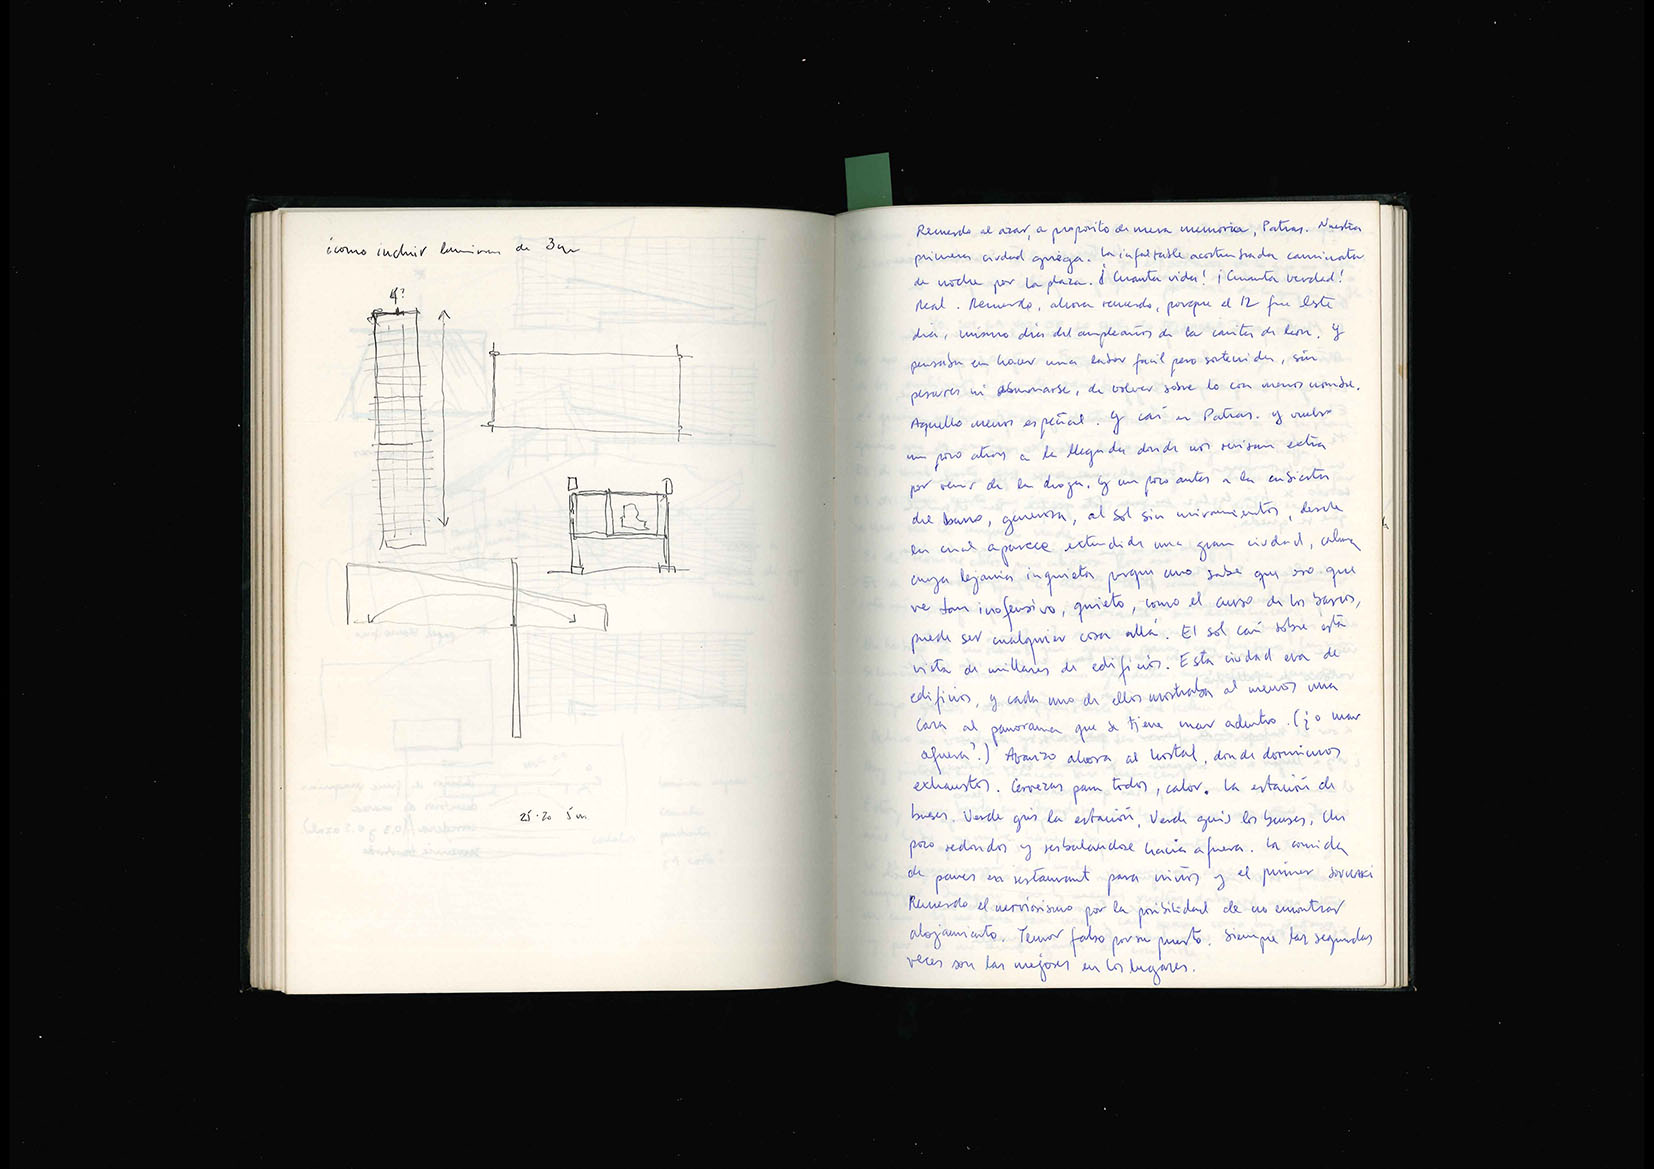 ¿como incluir laminas de 3 cm
4?
25·20 5 m
Recuerdo al azar, a proposito de mera memoria, Patras. Nuestra
primera ciudad griega. La infaltable acostumbrada caminata
de noche por la plaza. ¡Cuanta vida! ¡Cuanta verdad!
Real. Recuerdo, ahora recuerdo, porque el 12 fue este
día, mismo día del cumpleaños de la carita de leon. Y
pensaba en hacer una labor facil pero sostenida, sin
pesares ni abrumarse, de volver sobre lo con menos nombre.
Aquello menos español. Y caí en Patras. Y vuelvo
un poco atras a la llegada donde nos revisan extra
por venir de la droga. Y un poco antes a la cubierta
del barco, generosa, al sol sin miramientos, desde
la cual aparece extendida una gran ciudad, calma
cuya lejania inquieta porque uno sabe que eso que
ve tan inofensivo, quieto, como el curso de los barcos,
puede ser cualquier cosa allá. El sol caí sobre esta
vista de millares de edificios. Esta ciudad era de
edificios, y cada uno de ellos mostraba al menos una
cara al panorama que se tiene mar adentro. (¿o mar
afuera?) Avanzo ahora al hostal, donde dormimos
exhaustos. Cervezas para todos, calor. La estación de
buses. Verde gris la estación, Verde gris los buses, Un
poco redondos y resbalandose hacia afuera. La comida
de panes en restaurant para niños y el primer souvlaki
Recuerdo el nerviosismo por la posibilidad de no encontrar
alojamiento. Temor falso por supuesto. Siempre las segundas
veces son las mejores en los lugares.